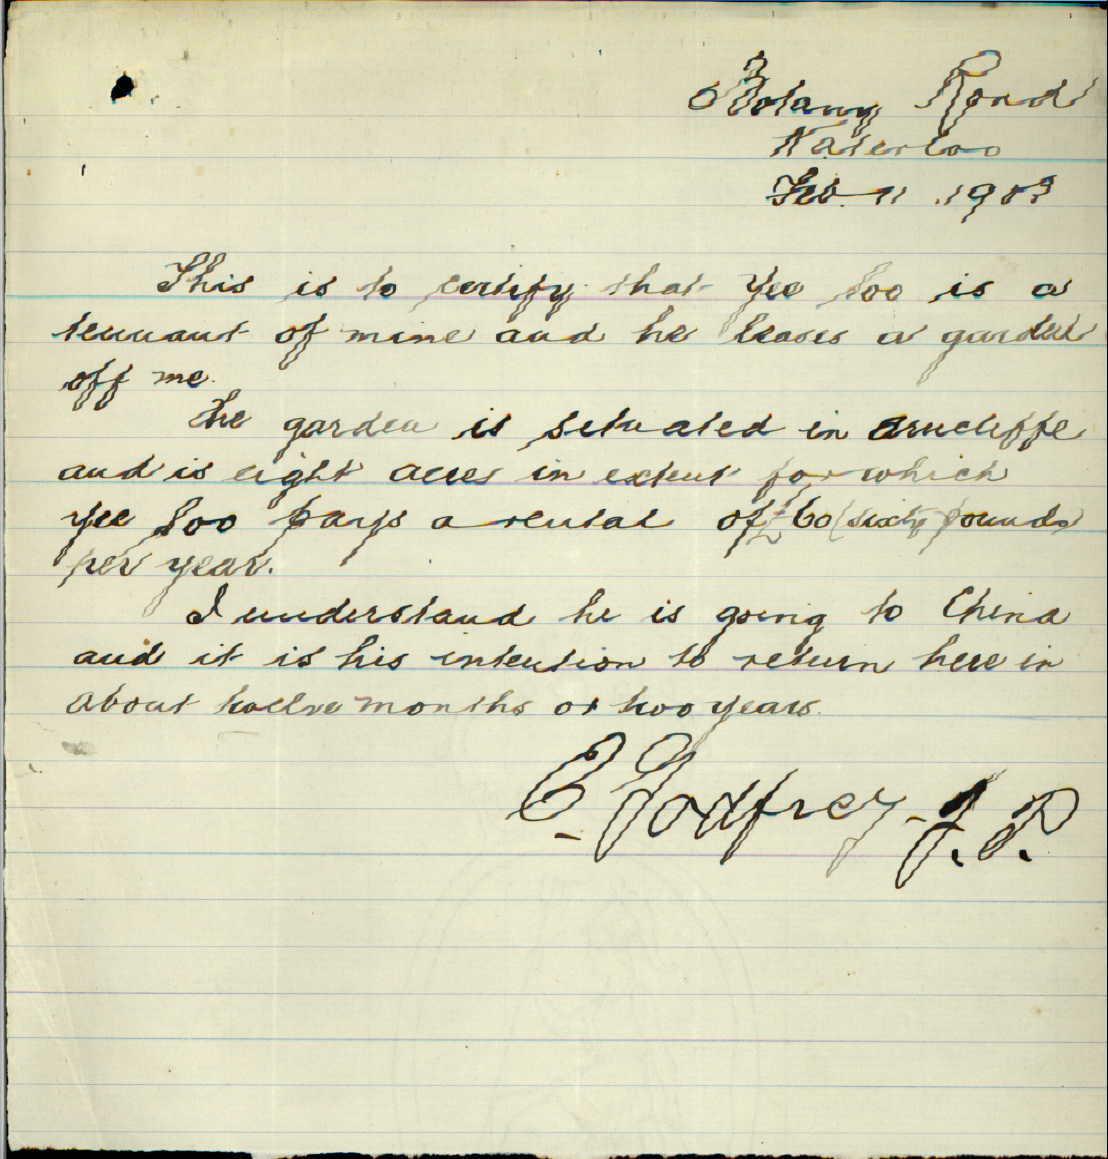 Botany Road
Waterloo
Feb. 11 1903
This is to certify that Yee Loo is a
tennant of mine and he leases a garden
off me.
The garden is setuated in arncliffe
and is eight acres in extent for which
Yee Loo pays a rental of £60 (sixty pounds
per year.
I understand he is going to China
and it is his intention to return here in
about twelve months or two years.
C. Godfrey J. P.